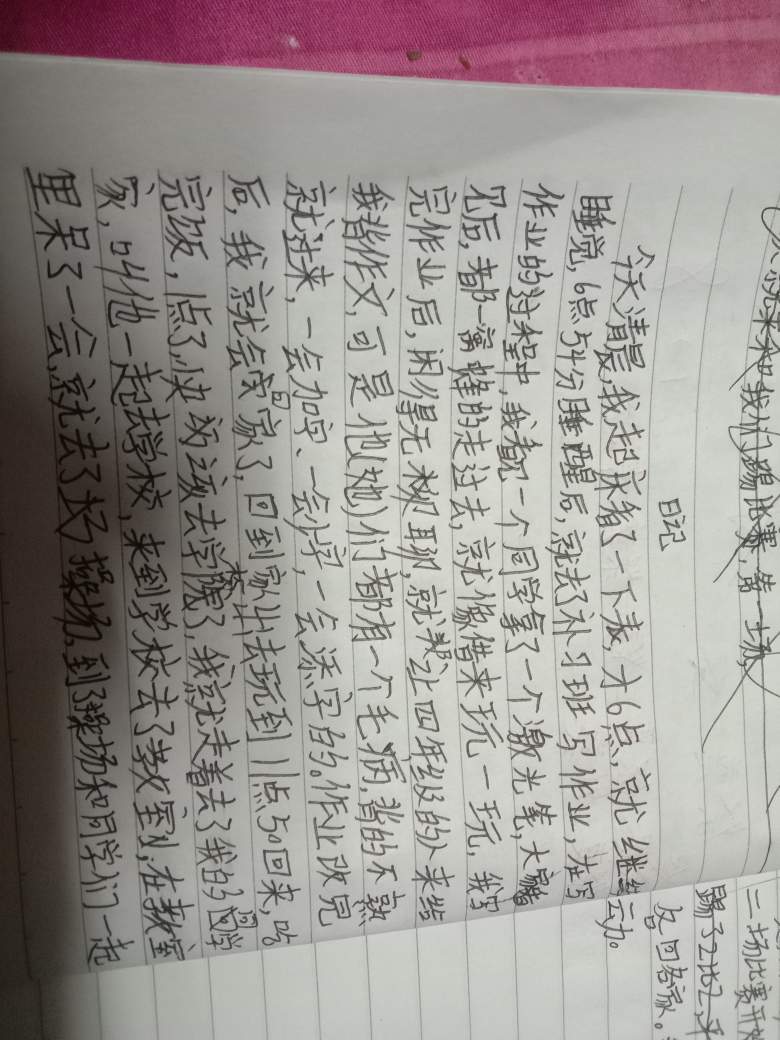 我们踢比赛，第一场，
日记
今天清晨，我起床看了一下表，才6点，就继
睡觉，6点54分睡醒后，就去了补习班写作业，在写
作业的过程中，我看见一个同学拿了一个激光笔，大家
见后，都一窝蜂的走过去，就像借来玩一玩，我写
完作业后，困得无聊，就让四年级的人来给
我背作文，可是他(她)们都有一个毛病，背的不熟
就过来，一会加字、一会少字，一会添字的。作业改完
后，我就会回家了，回到家出去玩到11点50回来，吃
完饭，1点了，快到该去学校了，我就走着去了我的同学
家，叫他一起去学校，来到学校去了教室，在教室
里呆了一会，就去了操场，到了操场和同学们一起
二场比赛开始
踢了2比2平
各回各家。